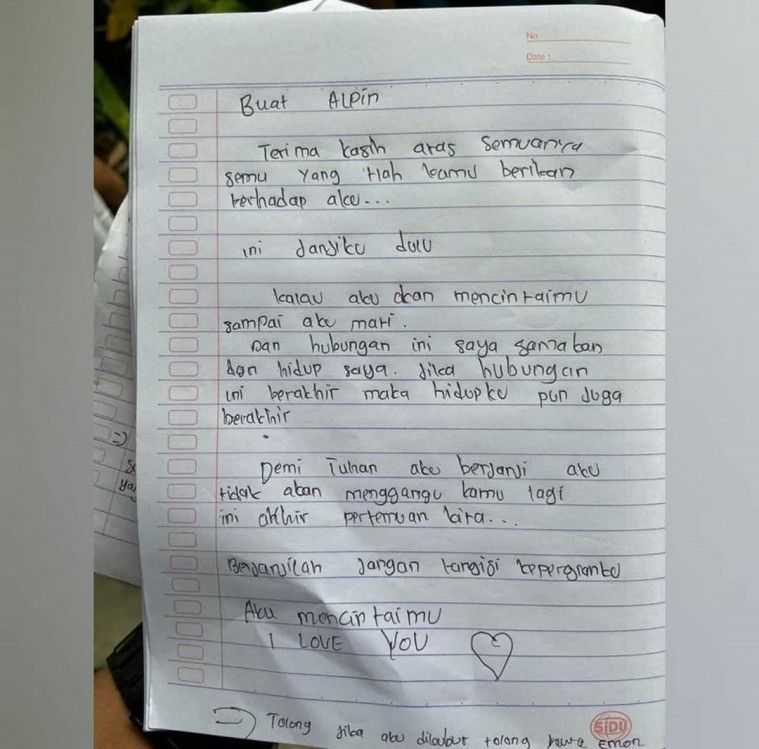 No.
Date :
Buat Alpin
Terima kasih atas semuanya
semu yang tlah kamu berikan
terhadap aku...
ini janjiku dulu
kalau aku akan mencintaimu
sampai aku mati.
Dan hubungan ini saya samakan
dgn hidup saya. Jika hubungan
ini berakhir maka hidupku pun juga
berakhir
Demi Tuhan aku berjanji aku
tidak akan menggangu kamu lagi
ini akhir pertemuan kita...
Berjanjilah jangan tangisi kepergianku
Aku mencintaimu
I LOVE YOU
=> Tolong jika aku dikubur tolong bawa Emon
SIDU